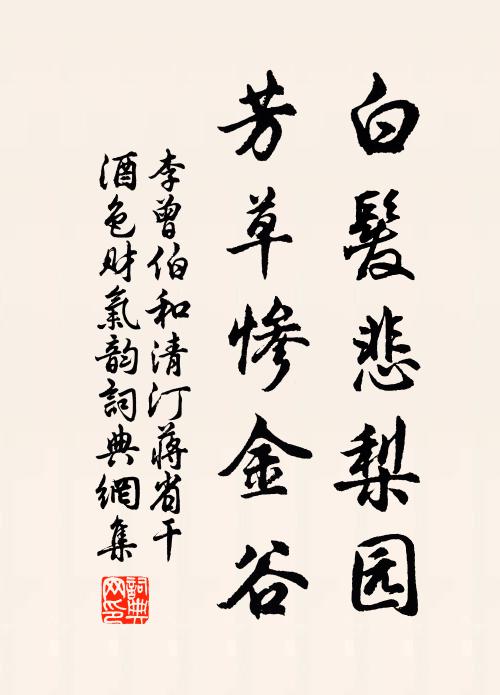 白髮悲梨园
芳草惨金谷
李曾伯和清汀蔣省干
酒色财氣韵詞典網集
詞典网印